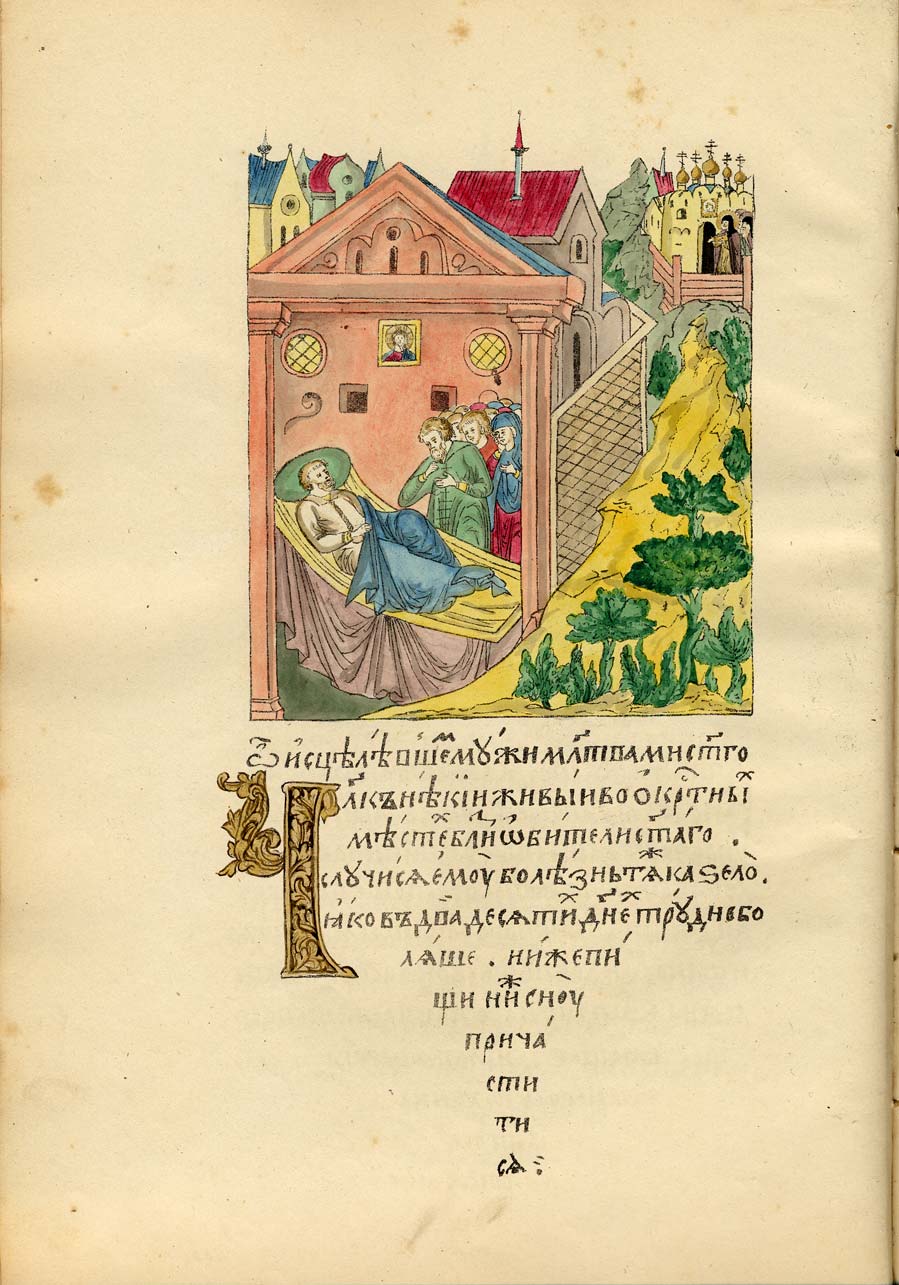 Ѿ исцѣлѣвшемъ мужи млⷭ҇твами ст҃го
Чл҃къ нѣкіи живыи во ѡкрⷭ҇тныⷯ
мѣстеⷯ блиⷥ ѡбители ст҃аго .
случися емоу болѣзнь тяⷤка ѕело̀ .
ꙗко въ два десяти днеⷯ трудне бо
ляше . ниже пи
щи ниⷤ снꙋ
прича
сти
ти
сѧ ⁘